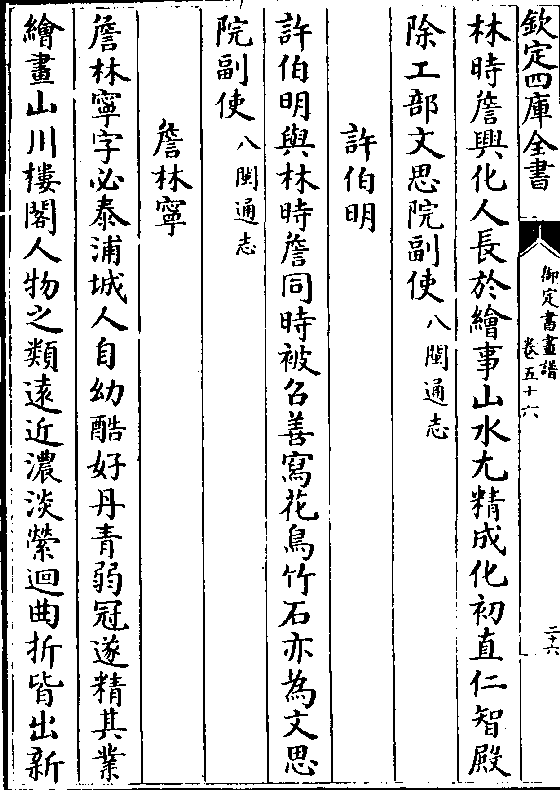 欽定四庫全書
御定書畫譜
卷五十六
二十六
林時詹興化人長於繪事山水尤精成化初直仁智殿
除工部文思院副使八閩通志
許伯明
許伯明與林時詹同時被召善寫花鳥竹石亦為文思
院副使八閩通志
詹林寧
詹林寧字必泰浦城人自幼酷好丹青弱冠遂精其業
繪畫山川樓閣人物之類遠近濃淡縈迴曲折皆出新